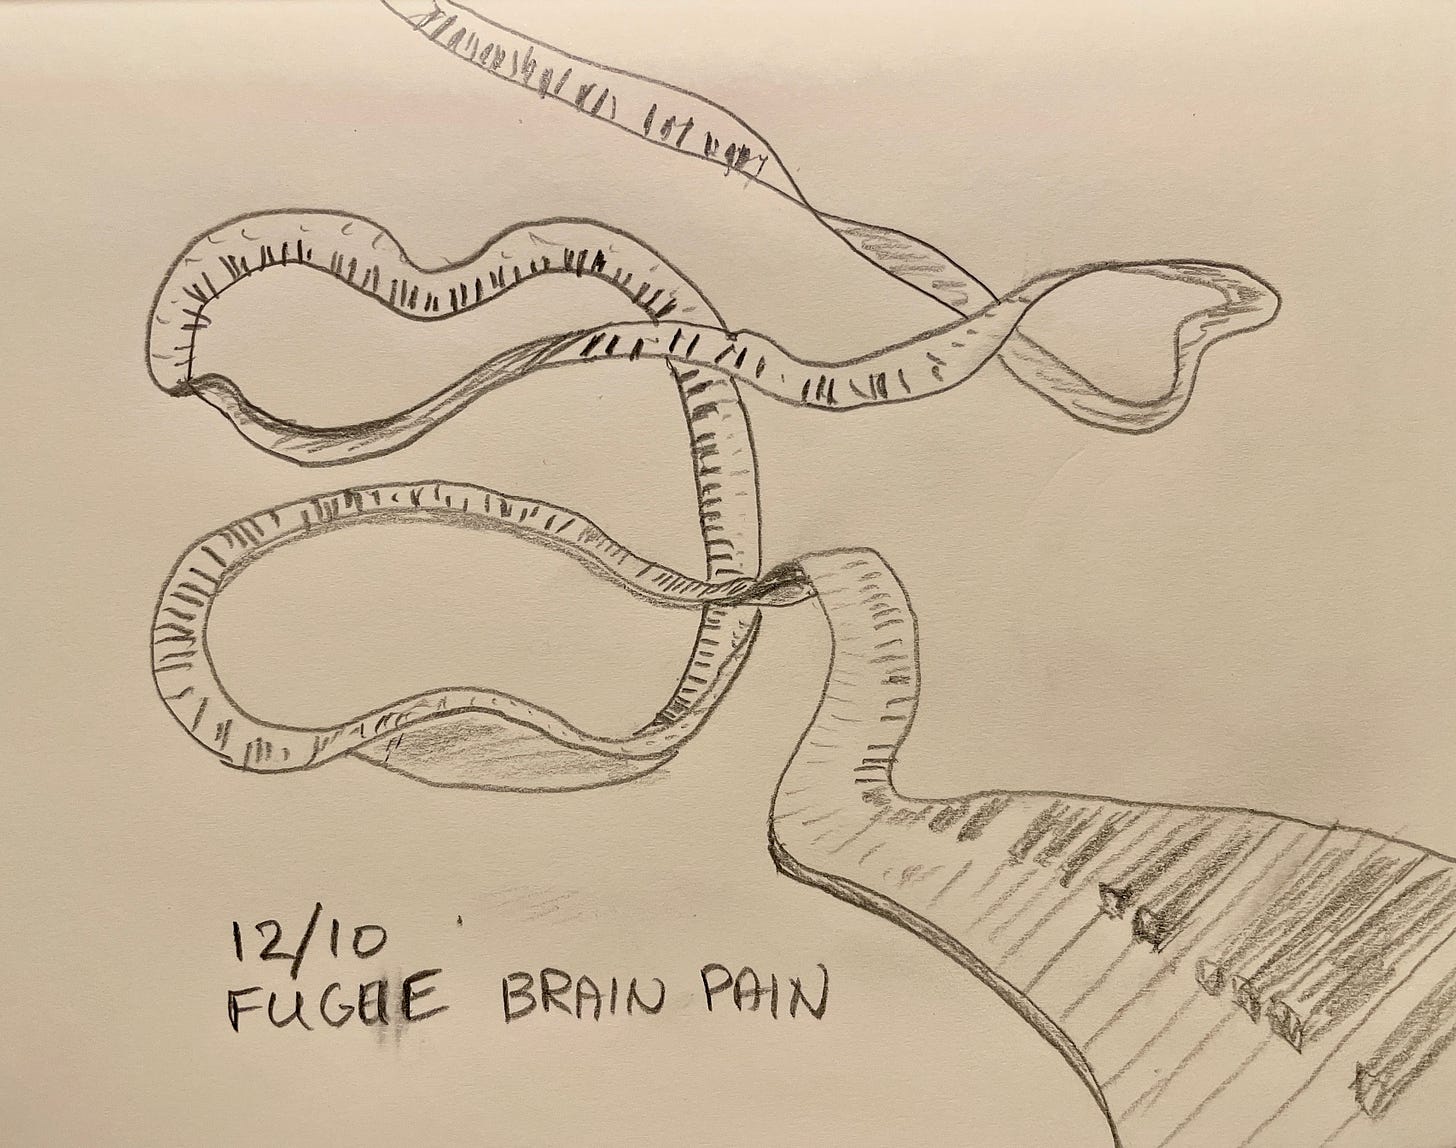 12/10
FUGUE BRAIN PAIN